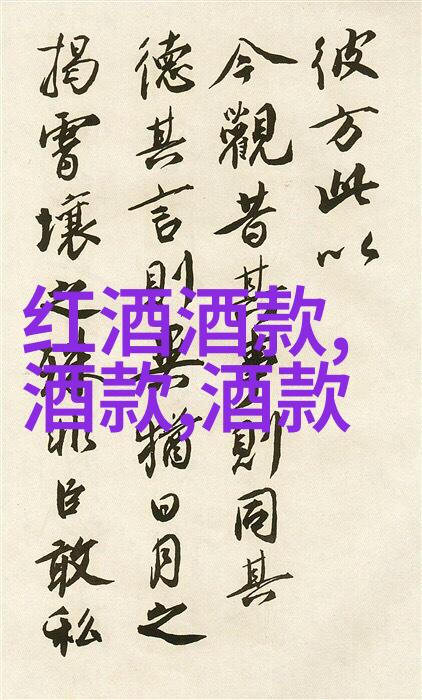 彼方此以
今觀昔其事則同其
德其言則異猶日月之
揭霄壤之非臣敢私
红酒酒款,
酒款,酒款